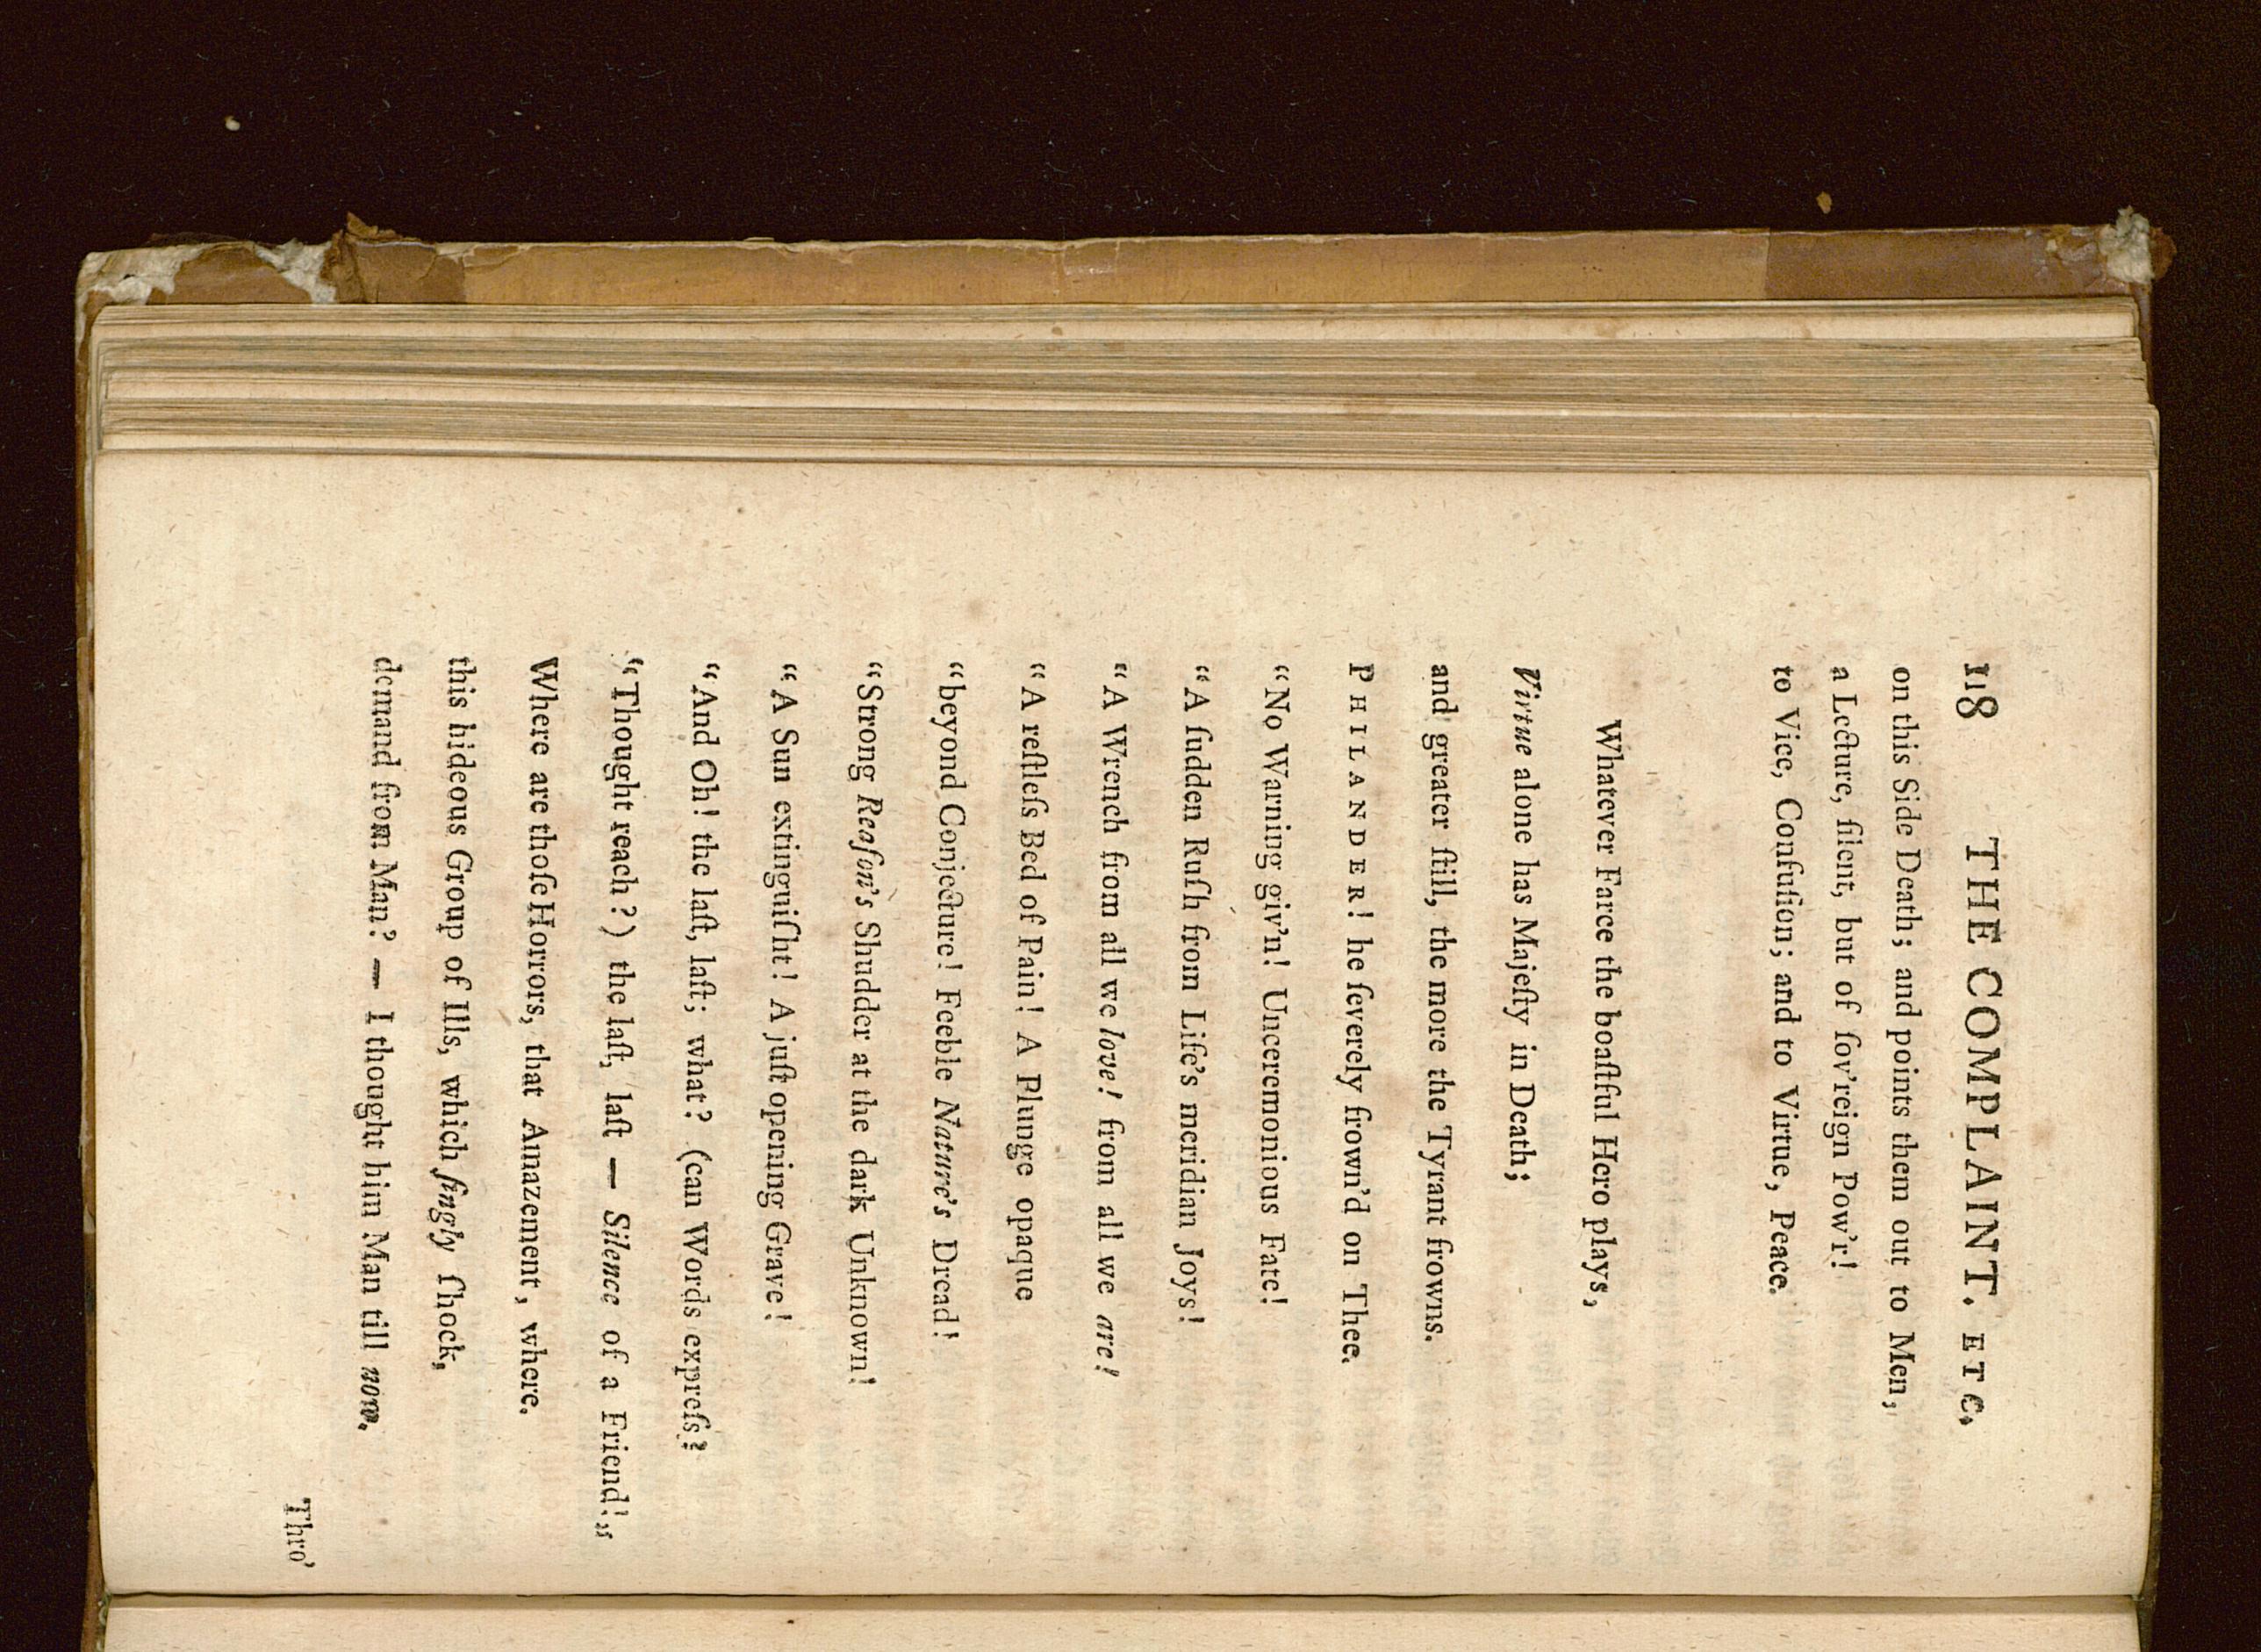 118 THE COMPLAINT. ETC.
on this Side Death; and points them out to Men,
a Lecture, ſilent, but of ſov'reign Pow'r!
to Vice, Confuſion; and to Virtue, Peace.
Whatever Farce the boaſtful Hero plays,
Virtue alone has Majeſty in Death;
and greater ſtill, the more the Tyrant frowns.
PHILANDER! he ſeverely frown'd on Thee.
“No Warning giv'n! Unceremonious Fate!
“A ſudden Ruſh from Life's meridian Joys!
“A Wrench from all we love! from all we are!
“A reſtleſs Bed of Pain! A Plunge opaque
“beyond Conjecture! Feeble Nature's Dread!
“Strong Reaſon's Shudder at the dark Unknown!
“A Sun extinguiſht! A juſt opening Grave!
“And Oh! the laſt, laſt; what? (can Words expreſs?
“Thought reach?) the laſt, laſt — Silence of a Friend!„
Where are thoſe Horrors, that Amazement, where.
this hideous Group of Ills, which ſingly ſhock,
demand from Man? — I thought him Man till now.
Thro'